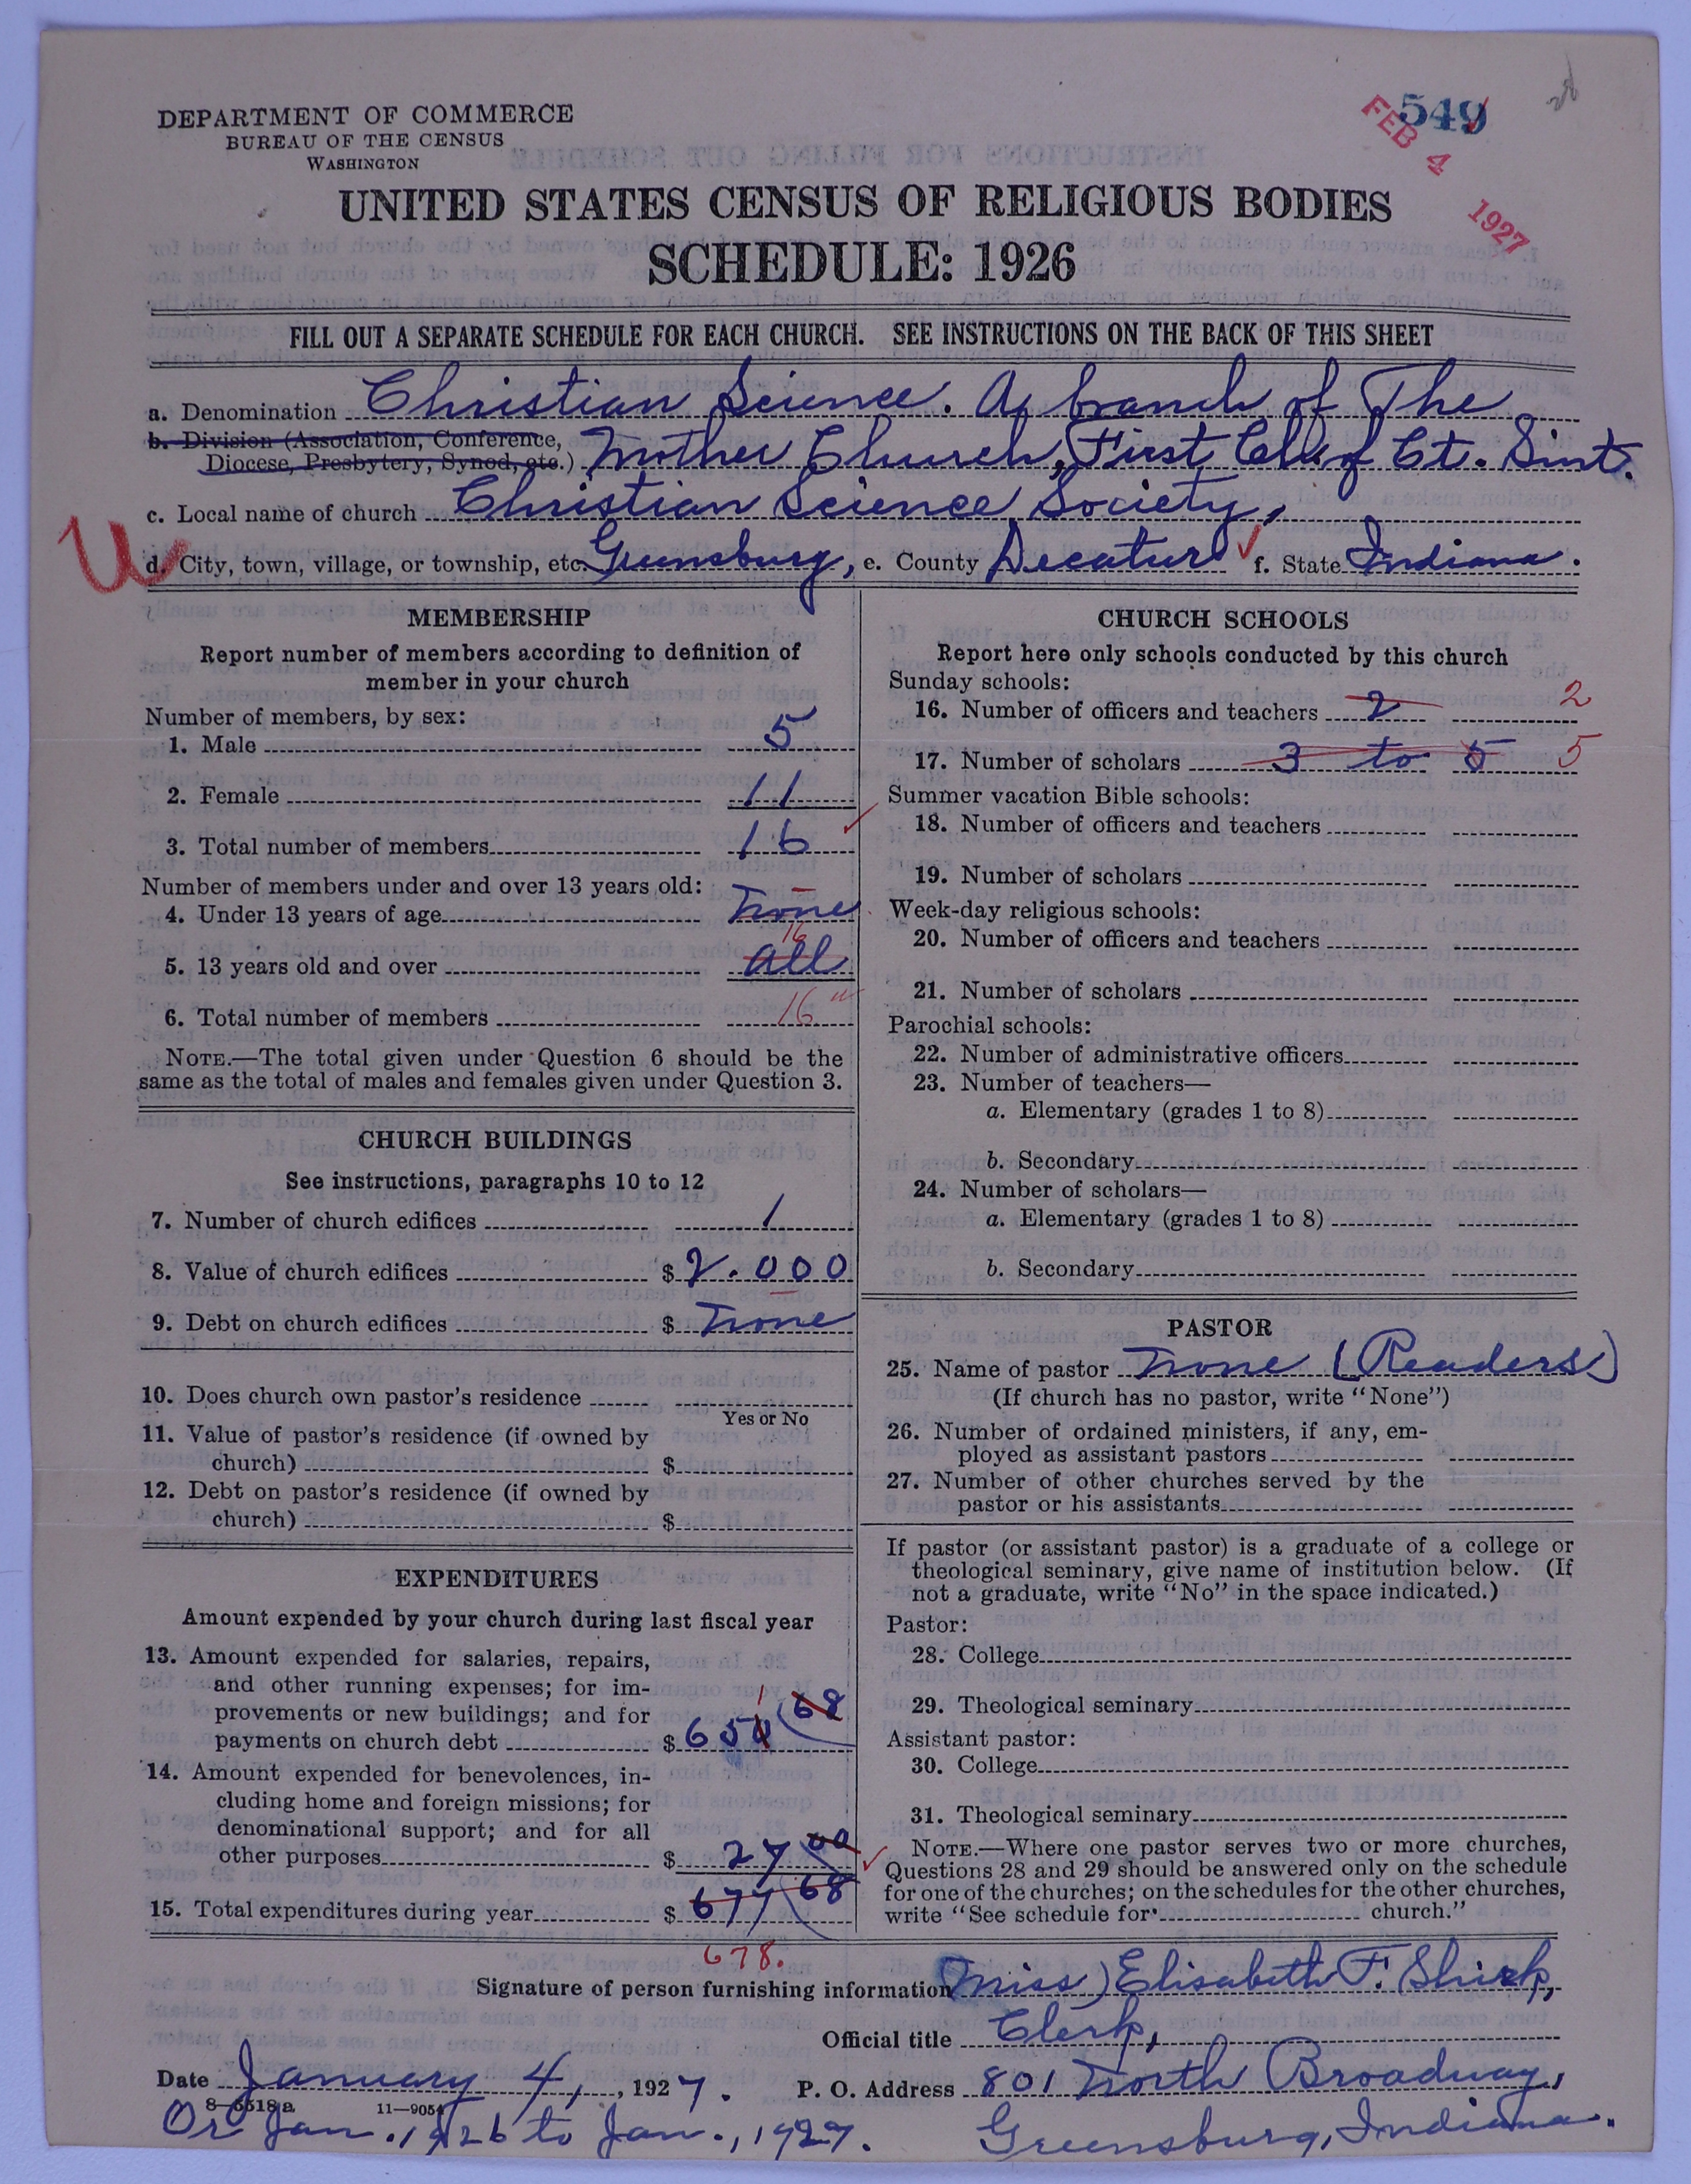 DEPARTMENT OF COMMERCE
BUREAU OF THE CENSUS
WASHINGTON
549
FEB 4 1927
UNITED STATES CENSUS OF RELIGIOUS BODIES
SCHEDULE: 1926
FILL OUT A SEPARATE SCHEDULE FOR EACH CHURCH. SEE INSTRUCTIONS ON THE BACK OF THIS SHEET
a. Denomination Christian Science. A branch of The
b. Division (Association, Conference,
Diocese, Presbytery, Synod, etc.) Mother Church, First Ch. of Ct. Sint.
c. Local name of church Christian Science Society,
d. City, town, village, or township, etc. Greensburg, e. County Decatur f. State Indiana.
MEMBERSHIP
Report number of members according to definition of
member in your church
Number of members, by sex:
1. Male 5
2. Female 11
3. Total number of members 16
Number of members under and over 13 years old:
4. Under 13 years of age None
16
5. 13 years old and over all
6. Total number of members 16
NOTE.—The total given under Question 6 should be the
same as the total of males and females given under Question 3.
CHURCH BUILDINGS
See instructions, paragraphs 10 to 12
7. Number of church edifices 1
8. Value of church edifices $ 2.000
9. Debt on church edifices $ None
10. Does church own pastor's residence
Yes or No
11. Value of pastor's residence (if owned by
church) $
12. Debt on pastor's residence (if owned by
church) $
EXPENDITURES
Amount expended by your church during last fiscal year
13. Amount expended for salaries, repairs,
and other running expenses; for im-
provements or new buildings; and for
1
payments on church debt $ 650 68
14. Amount expended for benevolences, in-
cluding home and foreign missions; for
denominational support; and for all
other purposes $ 27 00
15. Total expenditures during year $ 677 68
678.
CHURCH SCHOOLS
Report here only schools conducted by this church
Sunday schools:
16. Number of officers and teachers 2 2
17. Number of scholars 3 to 5 5
Summer vacation Bible schools:
18. Number of officers and teachers
19. Number of scholars
Week-day religious schools:
20. Number of officers and teachers
21. Number of scholars
Parochial schools:
22. Number of administrative officers
23. Number of teachers—
a. Elementary (grades 1 to 8)
b. Secondary
24. Number of scholars—
a. Elementary (grades 1 to 8)
b. Secondary
PASTOR
25. Name of pastor None (Readers)
(If church has no pastor, write "None")
26. Number of ordained ministers, if any, em-
ployed as assistant pastors
27. Number of other churches served by the
pastor or his assistants
If pastor (or assistant pastor) is a graduate of a college or
theological seminary, give name of institution below. (If
not a graduate, write "No" in the space indicated.)
Pastor:
28. College
29. Theological seminary
Assistant pastor:
30. College
31. Theological seminary
NOTE.—Where one pastor serves two or more churches,
Questions 28 and 29 should be answered only on the schedule
for one of the churches; on the schedules for the other churches,
write "See schedule for church."
Signature of person furnishing information Miss) Elisabeth F. Shirk,
Official title Clerk,
Date January 4, 1927. P. O. Address 801 North Broadway,
8—5518a 11—9054
Or Jan. 1926 to Jan., 1927. Greensburg, Indiana.